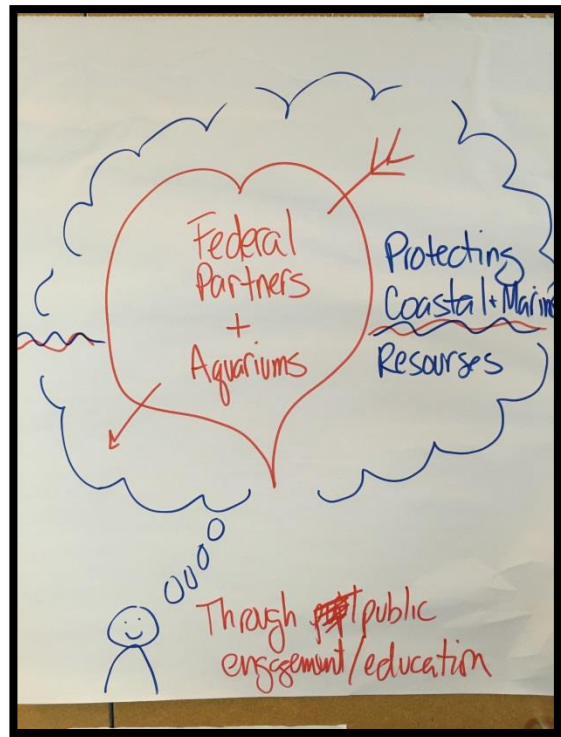 Federal
Partners
+
Aquariums
Protecting
Coastal + Marine
Resourses
Through public
engagement/education